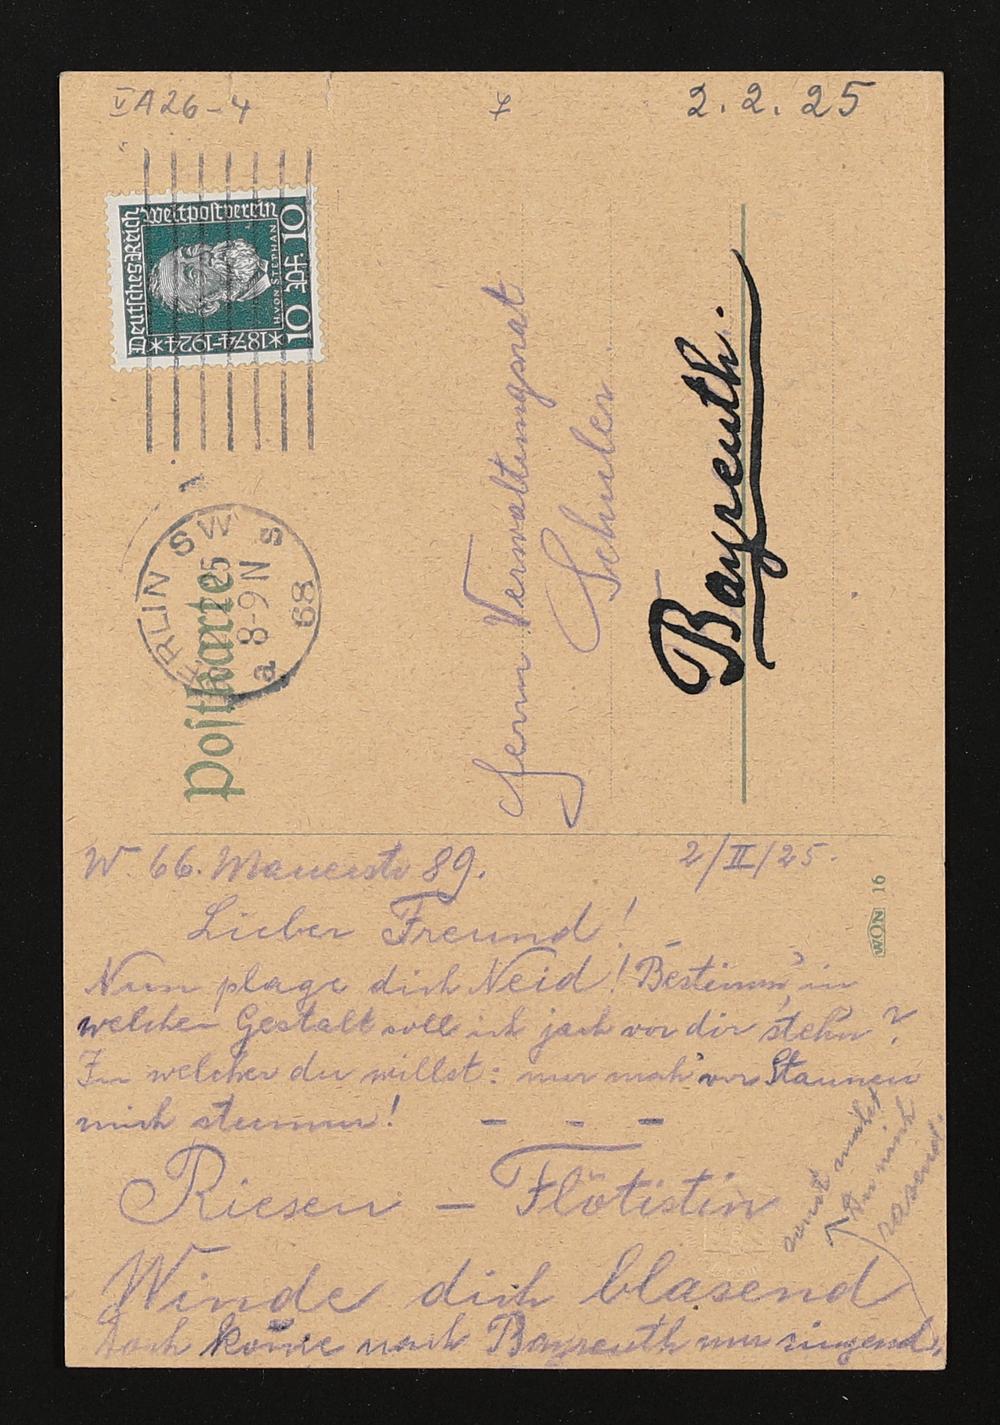 V A 26-4
2.2.25
Deutsches Reich
Weltpostverein
H. VON STEPHAN
10 Pf 10
*1874-1924*
RLIN SW
25
8-9 N
a S
68
Postkarte
Herrn Verwaltungsrat
Schuler
Bayreuth.
W. 66. Mauerstr 89.
2/II/25.
WON 16
Lieber Freund!
Nun plage dich Neid! Bestimm', in
welcher Gestalt soll ich jach vor dir stehn?
In welcher du willst: nur mach' vor Staunen
mich stumm! - - -
Riesen - Flötistin
Winde dich blasend
doch komme nach Bayreuth nur singend,
sonst machst
du mich
rasend.